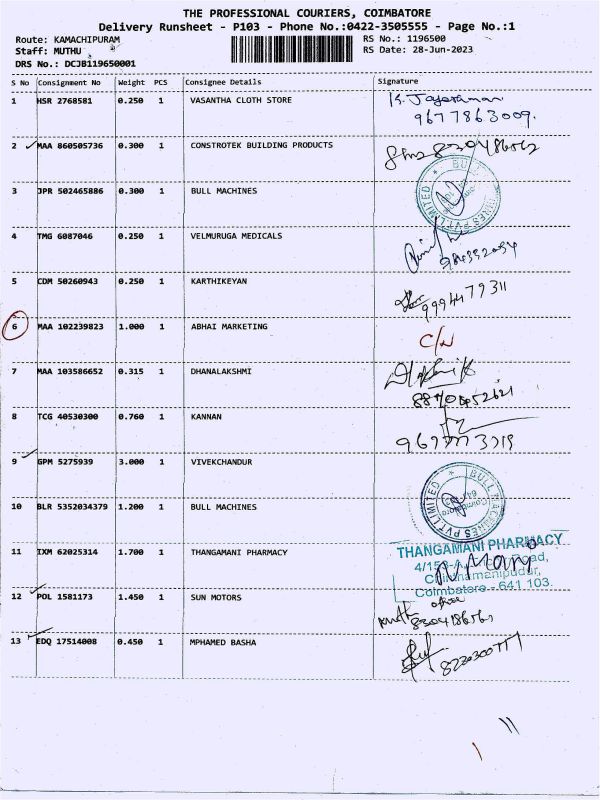 THE PROFESSIONAL COURIERS, COIMBATORE
Delivery Runsheet - P103 - Phone No.:0422-3505555 - Page No.:1
Route: KAMACHIPURAM RS No.: 1196500
Staff: MUTHU RS Date: 28-Jun-2023
DRS No.: DCJB119650001
S No Consignment No Weight PCS Consignee Details Signature
1 HSR 2768581 0.250 1 VASANTHA CLOTH STORE K. Jayaraman
9677863009.
2 MAA 860505736 0.300 1 CONSTROTEK BUILDING PRODUCTS
3 JPR 502465886 0.300 1 BULL MACHINES
4 TMG 6087046 0.250 1 VELMURUGA MEDICALS
5 CDM 50260943 0.250 1 KARTHIKEYAN
9994479311
6 MAA 102239823 1.000 1 ABHAI MARKETING
7 MAA 103586652 0.315 1 DHANALAKSHMI
8 TCG 40530300 0.760 1 KANNAN
9 GPM 5275939 3.000 1 VIVEKCHANDUR
10 BLR 5352034379 1.200 1 BULL MACHINES
BULL MACHINES PVT LIMITED
11 IXM 62025314 1.700 1 THANGAMANI PHARMACY
THANGAMANI PHARMACY
Coimbatore - 641 103.
12 POL 1581173 1.450 1 SUN MOTORS
13 EDQ 17514008 0.450 1 MPHAMED BASHA